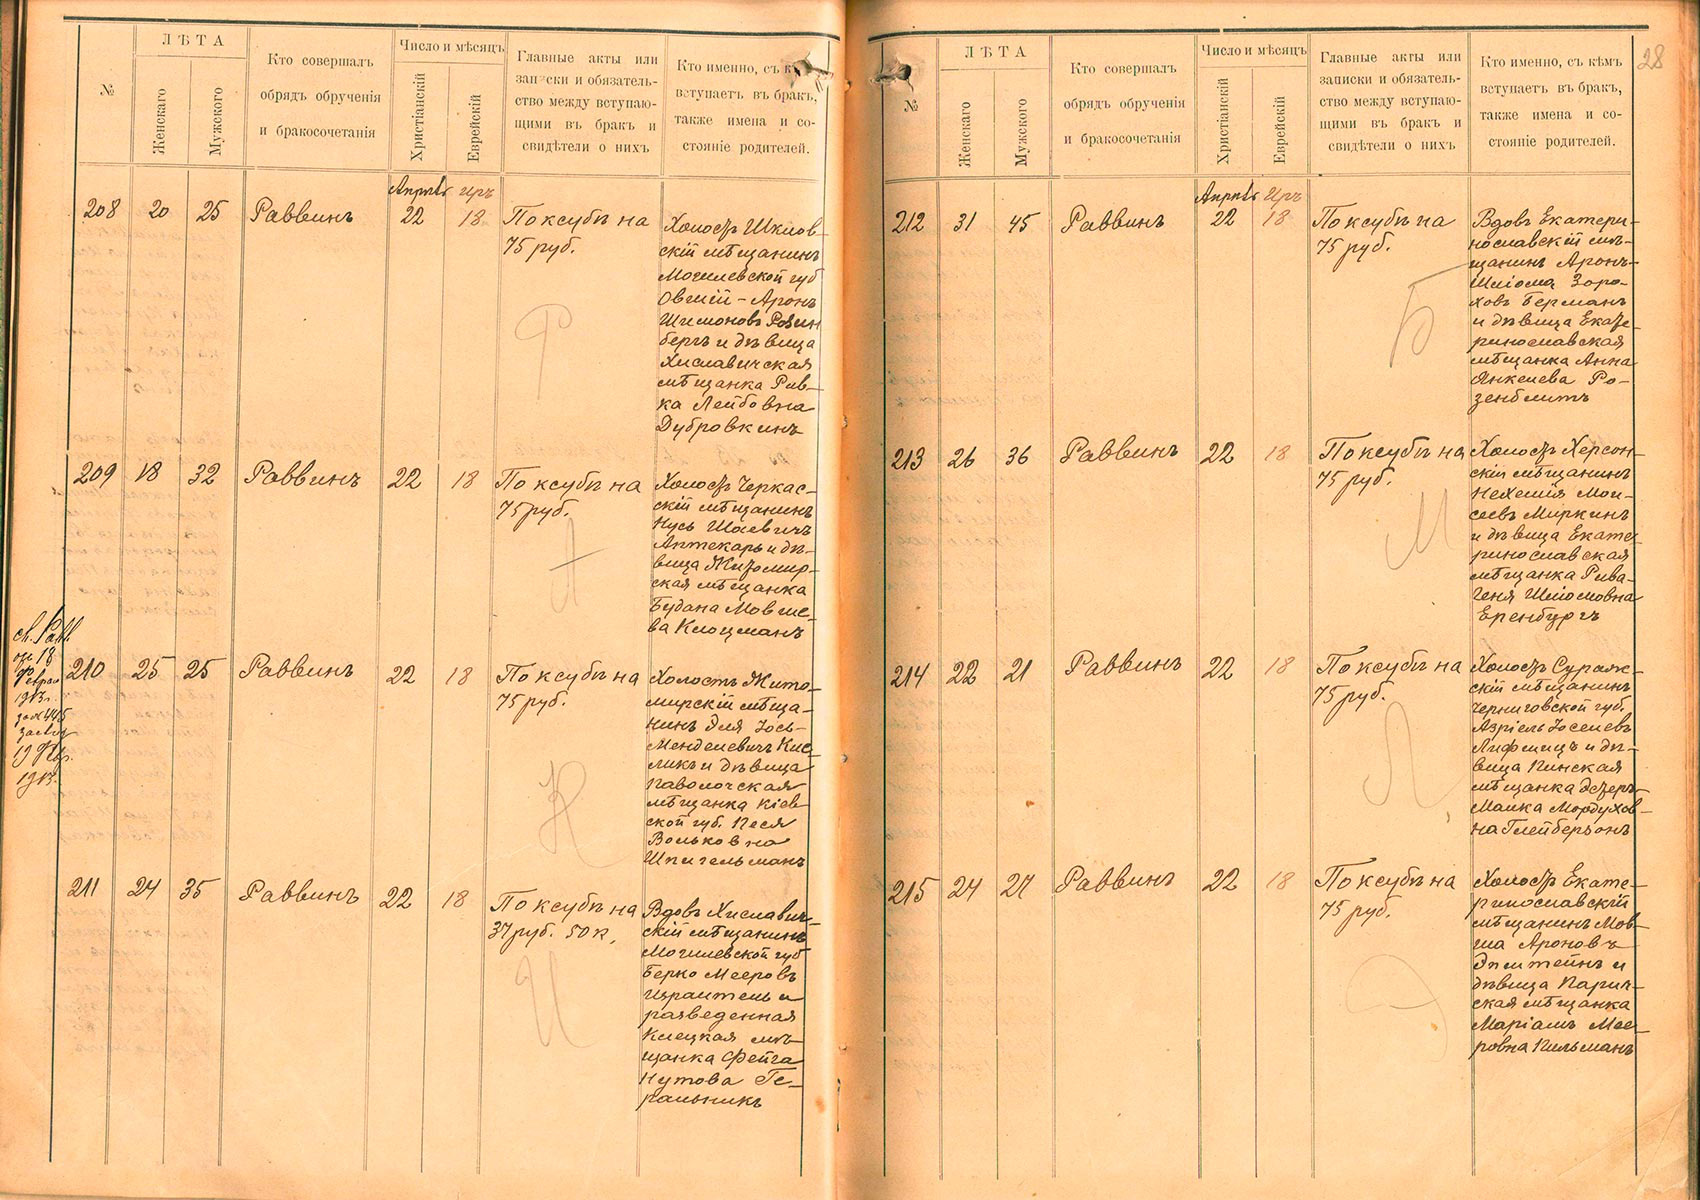 №
ЛѢТА
Женскаго
Мужского
Кто совершалъ
обрядъ обрученія
и бракосочетанія
Число и мѣсяцъ
Христіанскій
Еврейскій
Главные акты или
записки и обязатель-
ство между вступаю-
щими въ бракъ и
свидѣтели о нихъ
Кто именно, съ
вступаетъ въ бракъ,
также имена и со-
стояніе родителей.
Апрѣль Иръ
208 20 25 Раввинъ 22 18 По ксубѣ на
75 руб.
Холостъ Шклов-
скій мѣщанинъ
Могилевской губ
Овшій-Аронъ
Шимоновъ Розин
бергъ и дѣвица
Хиславичская
мѣщанка Рив-
ка Лейбовна
Дубровкинъ
209 18 32 Раввинъ 22 18 По ксубѣ на
75 руб.
Холостъ Черкас-
скій мѣщанинъ
Нусь Шаевичъ
Аптекарь и дѣ-
вица Житомир-
ская мѣщанка
Будана Мовше-
ва Клоцманъ
210 25 25 Раввинъ 22 18 По ксубѣ на
75 руб.
Холостъ Жито-
мирскій мѣща-
нинъ Эля Іось-
Менделевичъ Кис-
ликъ и дѣвица
Паволочская
мѣщанка Кіев-
ской губ. Песя
Вольковна
Шпигельманъ
18
1913.
19
1913.
211 24 35 Раввинъ 22 18 По ксубѣ на
37 руб. 50 к.
Вдовъ Хиславич-
скій мѣщанинъ
Могилевской губ
Берко Мееровъ
Израитель и
разведенная
Клецкая мѣ-
щанка Фейга
Нутова Ге-
ральникъ
Р
А
К
И
28
№
ЛѢТА
Женскаго
Мужского
Кто совершалъ
обрядъ обрученія
и бракосочетанія
Число и мѣсяцъ
Христіанскій
Еврейскій
Главные акты или
записки и обязатель-
ство между вступаю-
щими въ бракъ и
свидѣтели о нихъ
Кто именно, съ кѣмъ
вступаетъ въ бракъ,
также имена и со-
стояніе родителей.
Апрѣль Иръ
212 31 45 Раввинъ 22 18 По ксубѣ на
75 руб.
Вдовъ Екатери-
нославскій мѣ-
щанинъ Аронъ-
Шлiома Зоро-
ховъ Берманъ
и дѣвица Екате-
ринославская
мѣщанка Анна
Янкелева Ро-
зенблитъ
213 26 36 Раввинъ 22 18 По ксубѣ на
75 руб.
Холостъ Херсон-
скій мѣщанинъ
Нехемія Мои-
сеевъ Миркинъ
и дѣвица Екате-
ринославская
мѣщанка Рива-
Геня Шлiомовна
Еренбургъ
214 22 21 Раввинъ 22 18 По ксубѣ на
75 руб.
Холостъ Сураж-
скій мѣщанинъ
Черниговской губ.
Азріель Іоселевъ
Лифшицъ и дѣ-
вица Пинская
мѣщанка Эстеръ-
Малка Мордухов-
на Глейберзонъ
215 24 27 Раввинъ 22 18 По ксубѣ на
75 руб.
Холостъ Екате-
ринославскій
мѣщанинъ Мов-
ша Ароновъ
Эпштейнъ и
дѣвица Парич-
ская мѣщанка
Маріамъ Мее-
ровна Пильманъ
Б
М
Л
Э